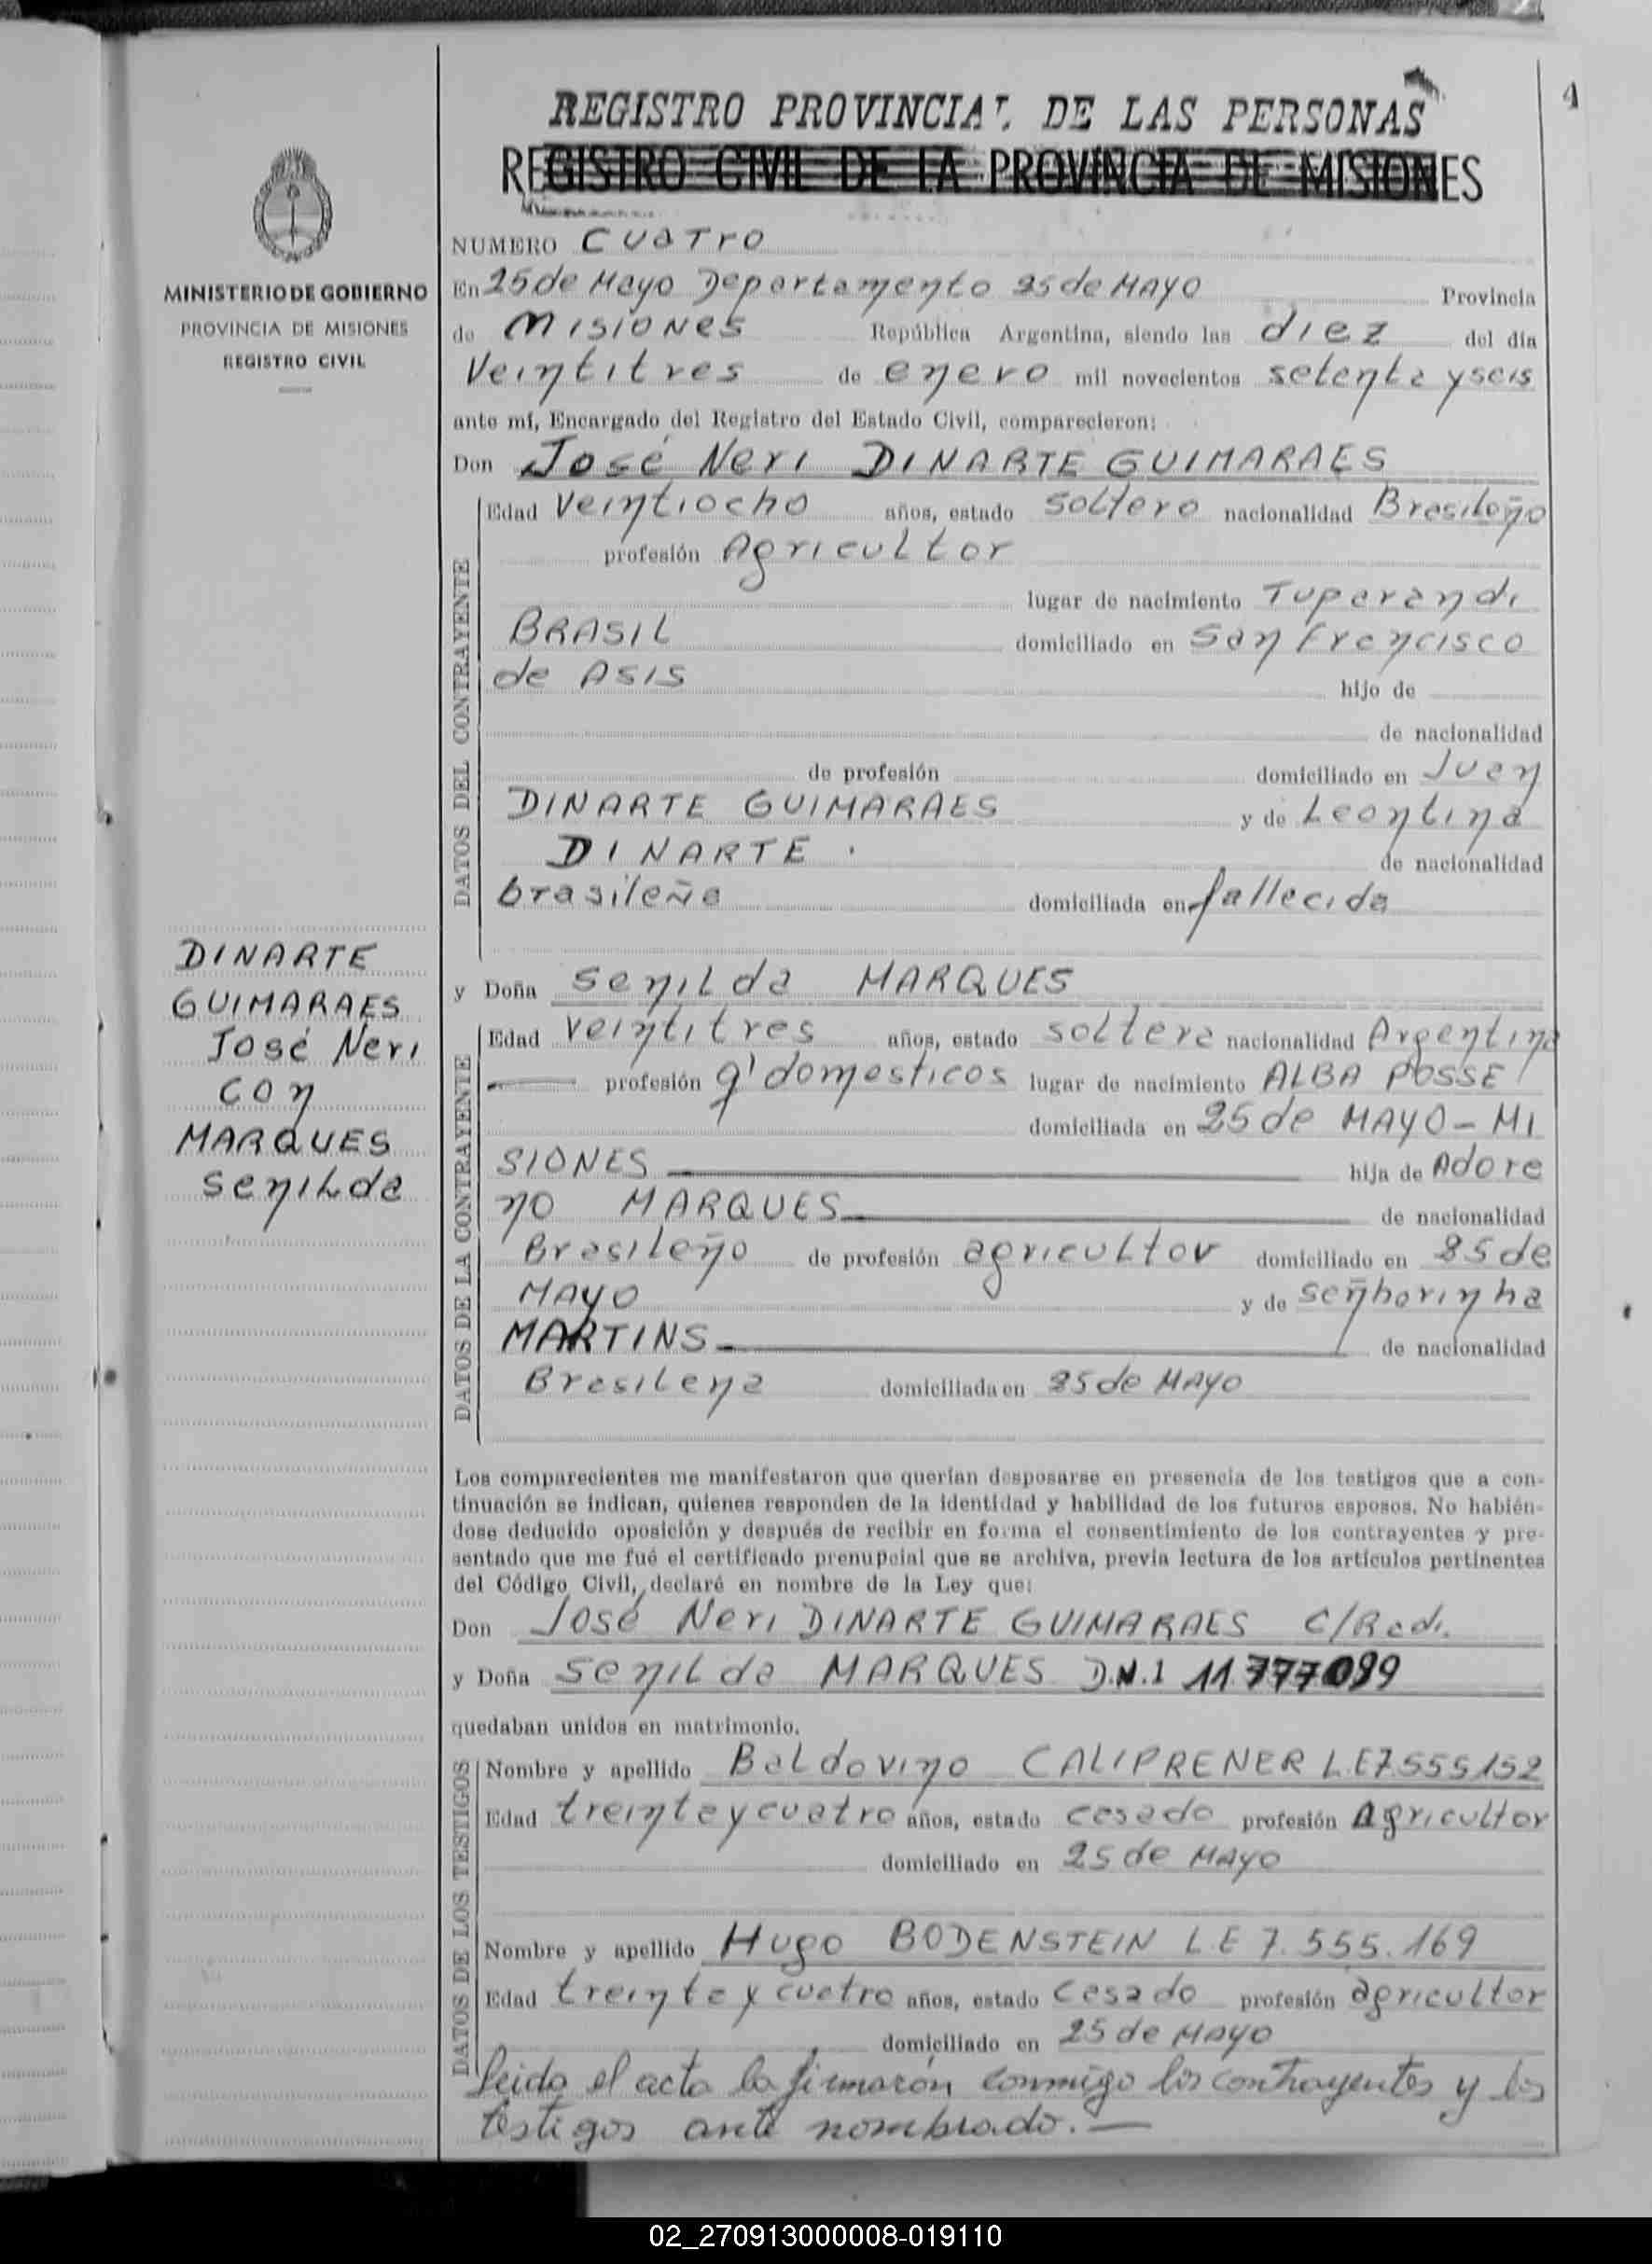 4
REGISTRO PROVINCIAL DE LAS PERSONAS
REGISTRO CIVIL DE LA PROVINCIA DE MISIONES
MINISTERIO DE GOBIERNO
PROVINCIA DE MISIONES
REGISTRO CIVIL
NUMERO CUATRO
En 25 de Mayo Departamento 25 de MAYO Provincia
de MISIONES República Argentina, siendo las diez del día
Veintitres de enero mil novecientos setenta y seis
ante mí, Encargado del Registro del Estado Civil, comparecieron:
Don José Neri DINARTE GUIMARAES
DATOS DEL CONTRAYENTE
Edad Veintiocho años, estado soltero nacionalidad Brasileño
profesión Agricultor
lugar de nacimiento Tuparandi
BRASIL domiciliado en San Francisco
de ASIS hijo de
de nacionalidad
de profesión domiciliado en Juan
DINARTE GUIMARAES y de Leontina
DINARTE. de nacionalidad
brasileña domiciliada en fallecida
DINARTE
GUIMARAES
José Neri
con
MARQUES
Senilda
y Doña Senilda MARQUES
DATOS DE LA CONTRAYENTE
Edad Veintitres años, estado soltera nacionalidad Argentina
profesión q' domesticos lugar de nacimiento ALBA POSSE
domiciliada en 25 de MAYO - MI
SIONES hija de Adore
no MARQUES de nacionalidad
Brasileño de profesión agricultor domiciliado en 25 de
MAYO y de señhorinha
MARTINS de nacionalidad
Brasilena domiciliada en 25 de MAYO
Los comparecientes me manifestaron que querían desposarse en presencia de los testigos que a con-
tinuación se indican, quienes responden de la identidad y habilidad de los futuros esposos. No habién-
dose deducido oposición y después de recibir en forma el consentimiento de los contrayentes y pre-
sentado que me fué el certificado prenupcial que se archiva, previa lectura de los artículos pertinentes
del Código Civil, declaré en nombre de la Ley que:
Don José Neri DINARTE GUIMARAES C/Radi.
y Doña Senilda MARQUES D.N.I 11.777099
quedaban unidos en matrimonio.
DATOS DE LOS TESTIGOS
Nombre y apellido Baldovino CALIPRENER L.E 7555152
Edad treinta y cuatro años, estado casado profesión Agricultor
domiciliado en 25 de MAYO
Nombre y apellido Hugo BODENSTEIN L.E 7.555.169
Edad treinta y cuatro años, estado casado profesión agricultor
domiciliado en 25 de MAYO
Leido el acta la firmaron conmigo los contrayentes y los
testigos ante nombrado. —
02_270913000008-019110